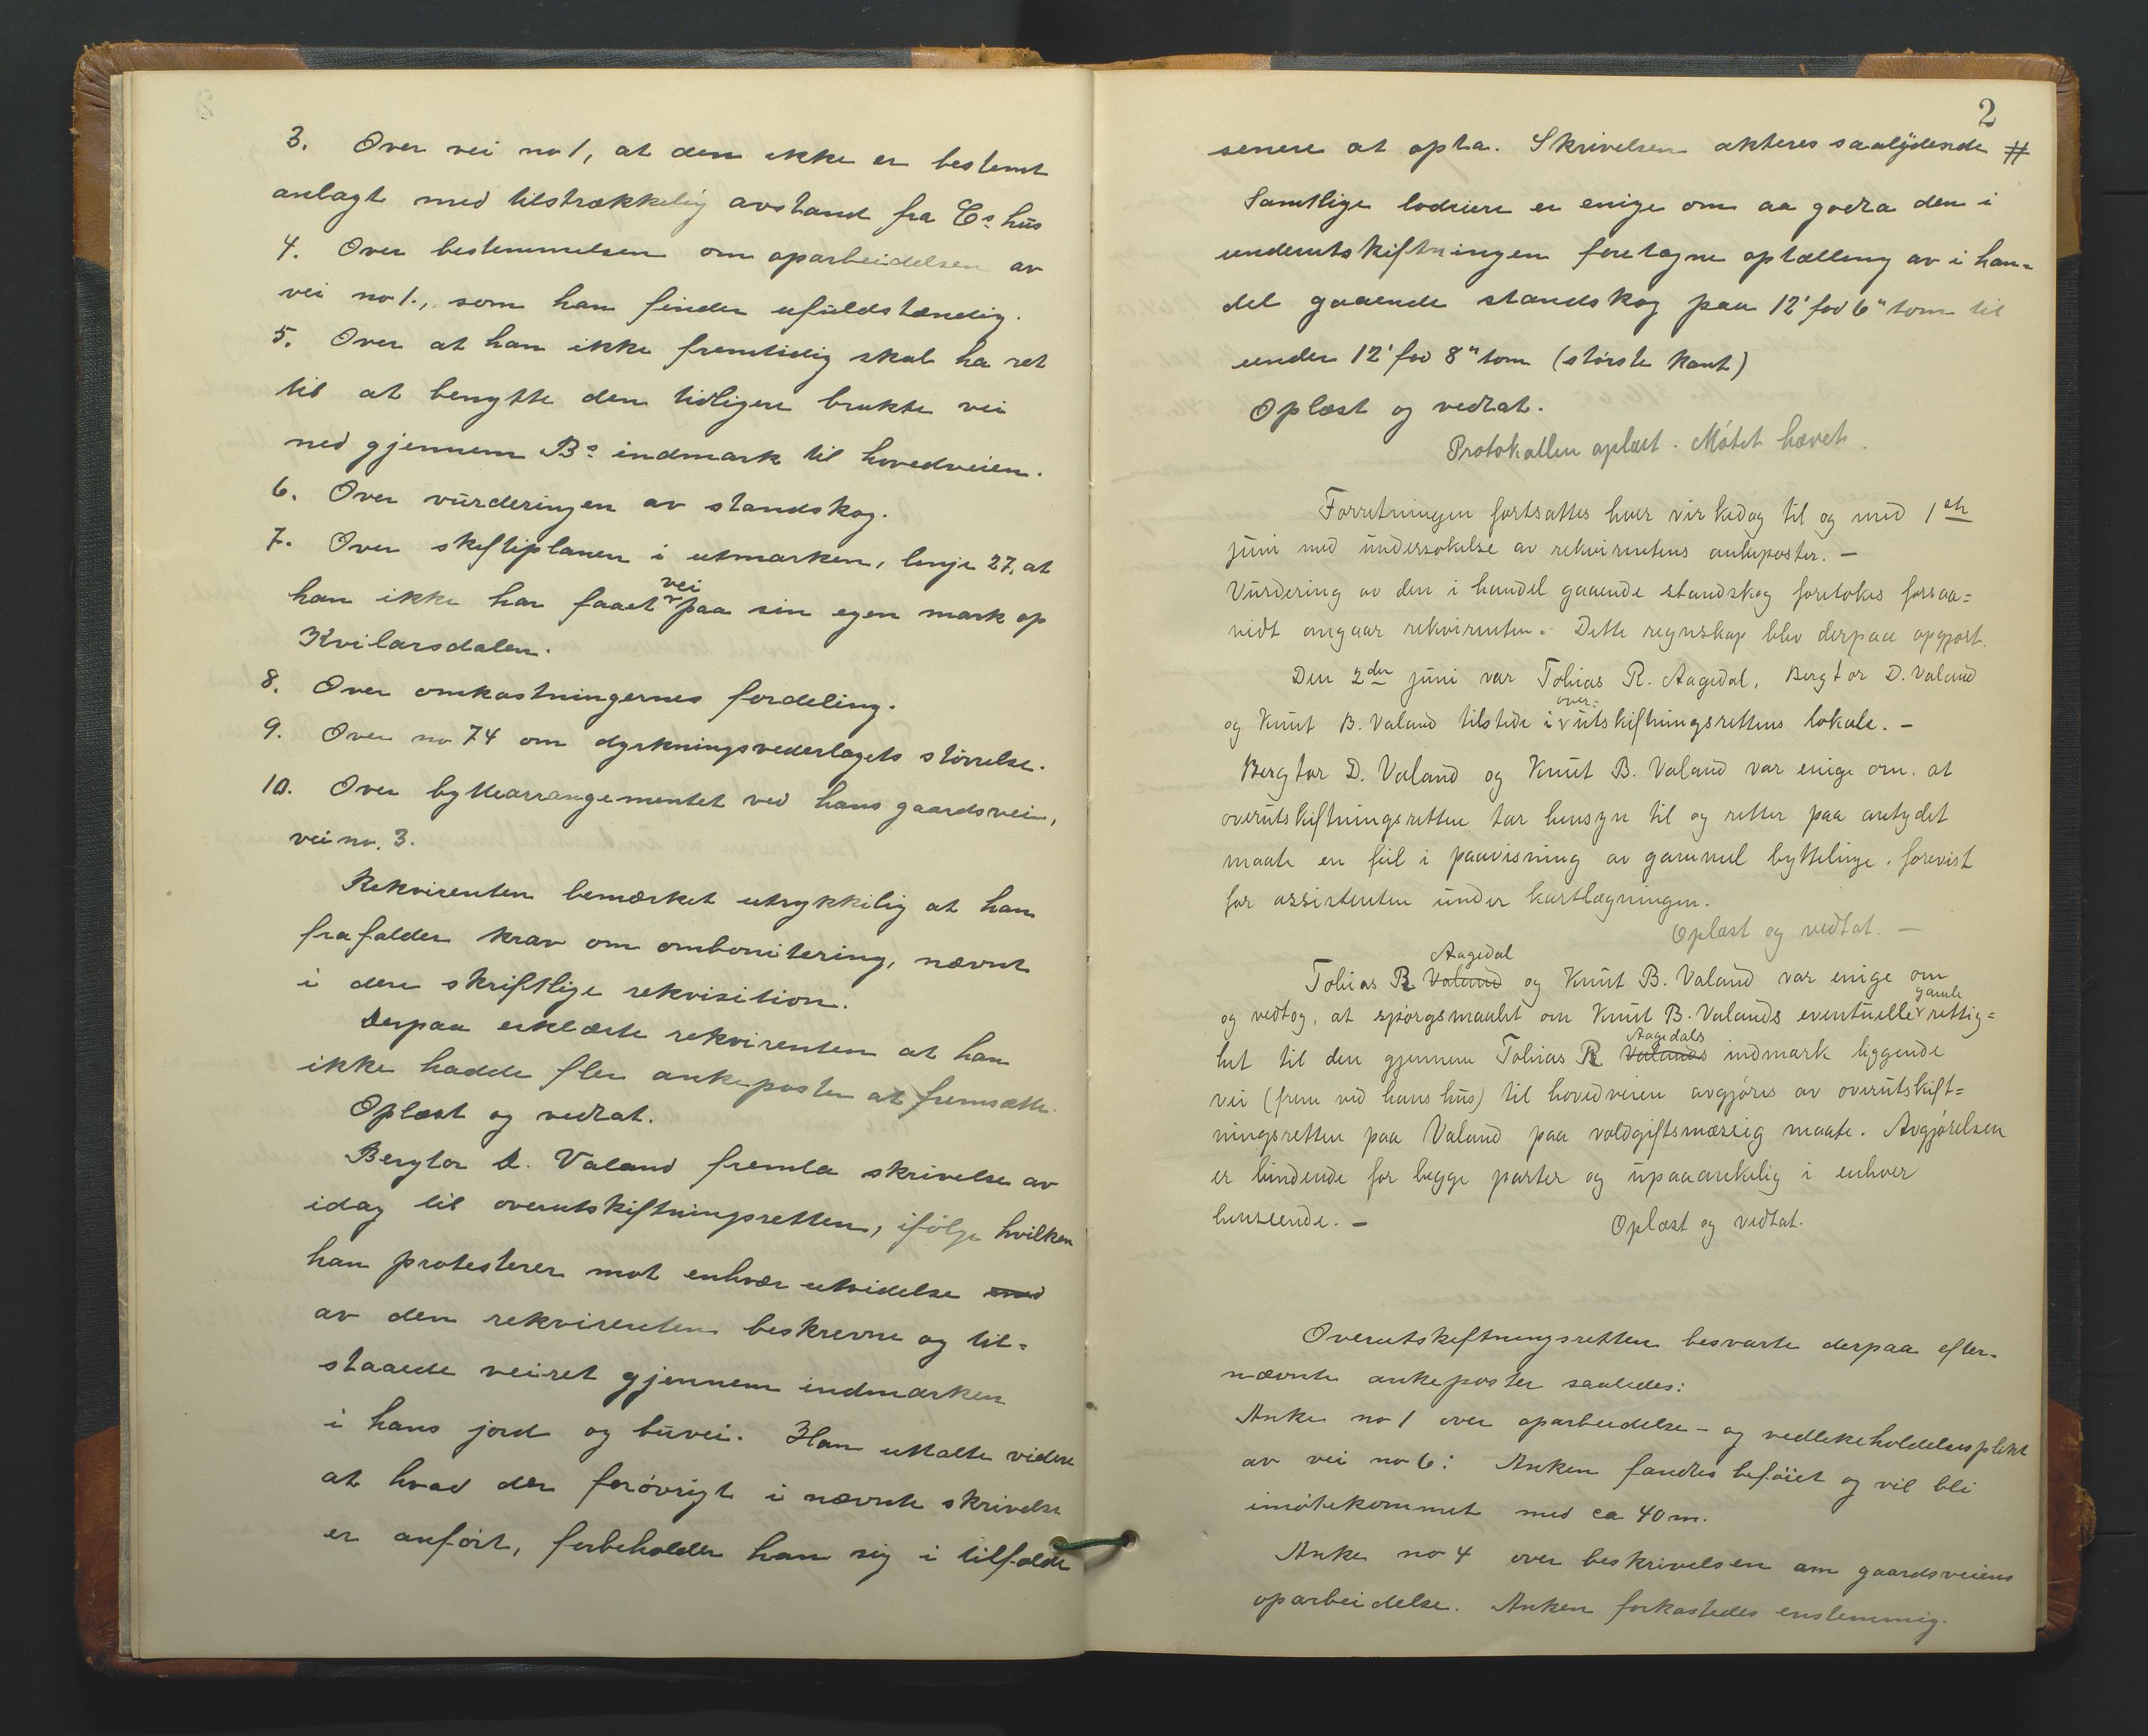 3. Over vei no 1, at den ikke er bestemt
anlagt med tilstrækkelig avstand fra Cs hus
4. Over bestemmelsen om oparbeidelsen av
vei no 1., som han finder ufuldstændig.
5. Over at han ikke fremtidig skal ha ret
til at benytte den tidligere brukte vei
ned gjennem Bs indmark til hovedveien.
6. Over vurderingen av standskog.
7. Over skifteplanen i utmarken, linje 27, at
han ikke har faaet vei paa sin egen mark op
Kvilarsdalen.
8. Over omkastningernes fordeling.
9. Over no 74 om dyrkningsvederlagets størrelse.
10. Over byttearrangementet ved hans gaardsvei,
vei no. 3.
Rekvirenten bemærket utrykkelig at han
frafalder krav om ombonitering, nævnt
i den skriftlige rekvisition.
Derpaa erklærte rekvirenten at han
ikke hadde fler ankeposter at fremsætte.
Oplæst og vedtat.
Bergtor D. Valand fremla skrivelse av
idag til overutskiftningsretten, ifølge hvilken
han protesterer mot enhver utvidelse med
av den rekvirenten beskrevne og til-
staaede veiret gjennem indmarken
i hans jord og buvei. Han uttalte videre
at hvad der forøvrigt i nævnte skrivelse
er anført, forbeholder han sig i tilfælde
2
senere at opta. Skrivelsen akteres saalydende #
Samtlige lodeiere er enige om aa godta den i
underutskiftningen foretagne optælling av i han-
del gaaende standskog paa 12' fod 6" tom til
under 12' fod 8" tom (største kant)
Oplæst og vedtat.
Protokollen oplæst. Møtet hævet.
Forretningen fortsattes hver virkedag til og med 1ste
juni med undersøkelse av rekvirentens ankeposter. —
Vurdering av den i handel gaaende standskog foretokes forsaa-
vidt angaar rekvirenten. Dette regnskap blev derpaa opgjort.
Den 2den juni var Tobias R. Aagedal, Bergtor D. Valand
og Knut B. Valand tilstede i over-utskiftningsrettens lokale. —
Bergtor D. Valand og Knut B. Valand var enige om, at
overutskiftningsretten tar hensyn til og retter paa antydet
maate en feil i paavisning av gammel byttelinje, forevist
for assistenten under kartlægningen.
Oplæst og vedtat. —
Tobias R Valand Aagedal og Knut B. Valand var enige om
og vedtog, at spørgsmaalet om Knut B. Valands eventuelle gamle rettig-
het til den gjennem Tobias R Valands Aagedals indmark liggende
vei (frem ved hans hus) til hovedveien avgjøres av overutskift-
ningsretten paa Valand paa voldgiftsmæssig maate. Avgjørelsen
er bindende for begge parter og upaaankelig i enhver
henseende. —
Oplæst og vedtat.
Overutskiftningsretten besvarte derpaa efter-
nævnte ankeposter saaledes:
Anke no 1 over oparbeidelse- og vedlikeholdelsesplikt
av vei no 6: Anken fandtes beføiet og vil bli
imøtekommet med ca 40 m.
Anke no 4 over beskrivelsen om gaardsveiens
oparbeidelse. Anken forkastedes enstemmig.